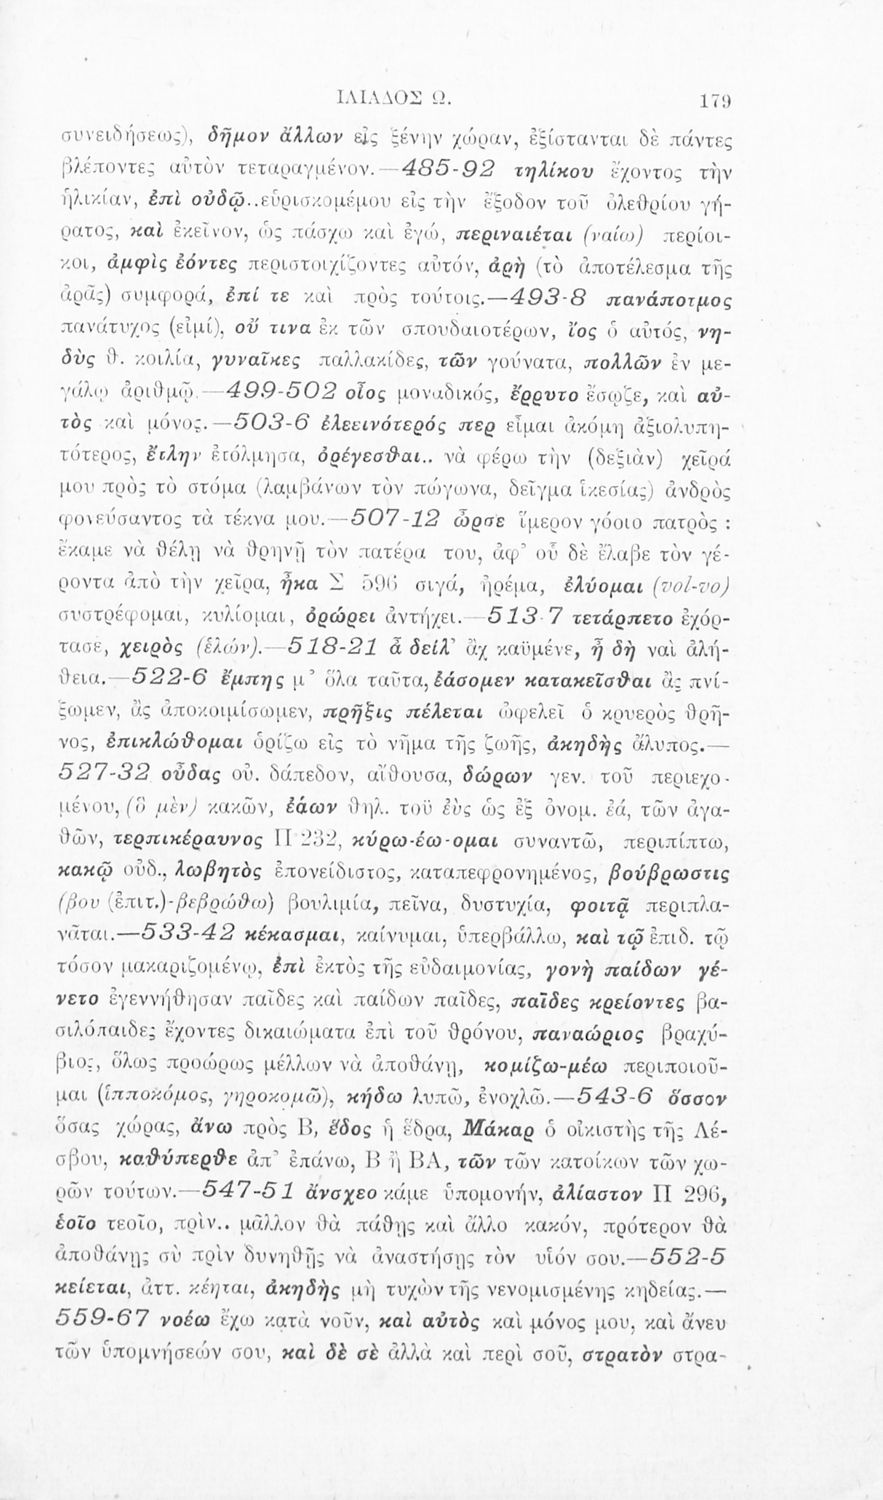 ΙΛΙΑΔΟΣ Ω. 179
συνειδήσεως), δῆμον ἄλλων εἰς ξένην χώραν, ἐξίστανται δὲ πάντες
βλέποντες αὐτὸν τεταραγμένον.—485-92 τηλίκου ἔχοντος τὴν
ἡλικίαν, ἐπὶ οὐδῷ..εὑρισκομέμου εἰς τὴν ἔξοδον τοῦ ὀλεθρίου γή-
ρατος, καὶ ἐκεῖνον, ὡς πάσχω καὶ ἐγώ, περιναιέται (ναίω) περίοι-
κοι, ἀμφὶς ἐόντες περιστοιχίζοντες αὐτόν, ἀρὴ (τὸ ἀποτέλεσμα τῆς
ἀρᾶς) συμφορά, ἐπί τε καὶ πρὸς τούτοις.—493-8 πανάποτμος
πανάτυχος (εἰμί), οὔ τινα ἐκ τῶν σπουδαιοτέρων, ἴος ὁ αὐτός, νη-
δὺς θ. κοιλία, γυναῖκες παλλακίδες, τῶν γούνατα, πολλῶν ἐν με-
γάλῳ ἀριθμῷ.—499-502 οἶος μοναδικός, ἔρρυτο ἔσῳζε, καὶ αὐ-
τὸς καὶ μόνος.—503-6 ἐλεεινότερός περ εἶμαι ἀκόμη ἀξιολυπη-
τότερος, ἔτλην ἐτόλμησα, ὀρέγεσθαι.. νὰ φέρω τὴν (δεξιὰν) χεῖρά
μου πρὸς τὸ στόμα (λαμβάνων τὸν πώγωνα, δεῖγμα ἱκεσίας) ἀνδρὸς
φονεύσαντος τὰ τέκνα μου.—507-12 ὦρσε ἵμερον γόοιο πατρὸς :
ἔκαμε νὰ θέλῃ νὰ θρηνῇ τὸν πατέρα του, ἀφ’ οὗ δὲ ἔλαβε τὸν γέ-
ροντα ἀπὸ τὴν χεῖρα, ἦκα Σ 596 σιγά, ἠρέμα, ἐλύομαι (vol-vo)
συστρέφομαι, κυλίομαι, ὀρώρει ἀντήχει.—513-7 τετάρπετο ἐχόρ-
τασε, χειρὸς (ἑλών).—518-21 ἆ δείλ’ ἂχ καϋμένε, ἦ δὴ ναὶ ἀλή-
θεια.—522-6 ἔμπης μ’ ὅλα ταῦτα, ἐάσομεν κατακεῖσθαι ἂς πνί-
ξωμεν, ἂς ἀποκοιμίσωμεν, πρῆξις πέλεται ὠφελεῖ ὁ κρυερὸς θρῆ-
νος, ἐπικλώθομαι ὁρίζω εἰς τὸ νῆμα τῆς ζωῆς, ἀκηδὴς ἄλυπος.—
527-32 οὖδας οὐ. δάπεδον, αἴθουσα, δώρων γεν. τοῦ περιεχο-
μένου, (ὃ μὲν) κακῶν, ἐάων θηλ. τοῦ ἐὺς ὡς ἐξ ὀνομ. ἐά, τῶν ἀγα-
θῶν, τερπικέραυνος Π 232, κύρω-έω-ομαι συναντῶ, περιπίπτω,
κακῷ οὐδ., λωβητὸς ἐπονείδιστος, καταπεφρονημένος, βούβρωστις
(βου (ἐπιτ.)-βεβρώθω) βουλιμία, πεῖνα, δυστυχία, φοιτᾷ περιπλα-
νᾶται.—533-42 κέκασμαι, καίνυμαι, ὑπερβάλλω, καὶ τῷ ἐπιδ. τῷ
τόσον μακαριζομένῳ, ἐπὶ ἐκτὸς τῆς εὐδαιμονίας, γονὴ παίδων γέ-
νετο ἐγεννήθησαν παῖδες καὶ παίδων παῖδες, παῖδες κρείοντες βα-
σιλόπαιδες ἔχοντες δικαιώματα ἐπὶ τοῦ θρόνου, παναώριος βραχύ-
βιος, ὅλως προώρως μέλλων νὰ ἀποθάνῃ, κομίζω-μέω περιποιοῦ-
μαι (ἱπποκόμος, γηροκομῶ), κήδω λυπῶ, ἐνοχλῶ.—543-6 ὅσσον
ὅσας χώρας, ἄνω πρὸς Β, ἕδος ἡ ἕδρα, Μάκαρ ὁ οἰκιστὴς τῆς Λέ-
σβου, καθύπερθε ἀπ’ ἐπάνω, Β ἢ ΒΑ, τῶν τῶν κατοίκων τῶν χω-
ρῶν τούτων.—547-51 ἄνσχεο κάμε ὑπομονήν, ἀλίαστον Π 296,
ἑοῖο τεοῖο, πρὶν.. μᾶλλον θὰ πάθῃς καὶ ἄλλο κακόν, πρότερον θὰ
ἀποθάνῃς σὺ πρὶν δυνηθῇς νὰ ἀναστήσῃς τὸν υἱόν σου.—552-5
κείεται, ἀττ. κέηται, ἀκηδὴς μὴ τυχὼν τῆς νενομισμένης κηδείας.—
559-67 νοέω ἔχω κατὰ νοῦν, καὶ αὐτὸς καὶ μόνος μου, καὶ ἄνευ
τῶν ὑπομνήσεών σου, καὶ δὲ σὲ ἀλλὰ καὶ περὶ σοῦ, στρατὸν στρα-